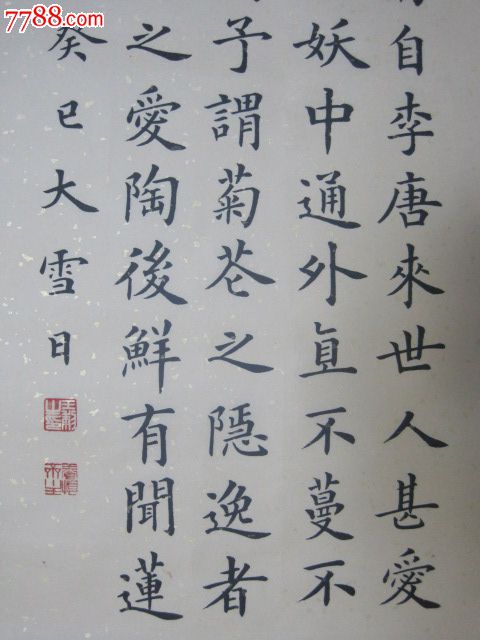 自李唐來世人甚愛
妖中通外直不蔓不
予謂菊花之隱逸者
之愛陶後鮮有聞蓮
癸巳大雪日
7788.com